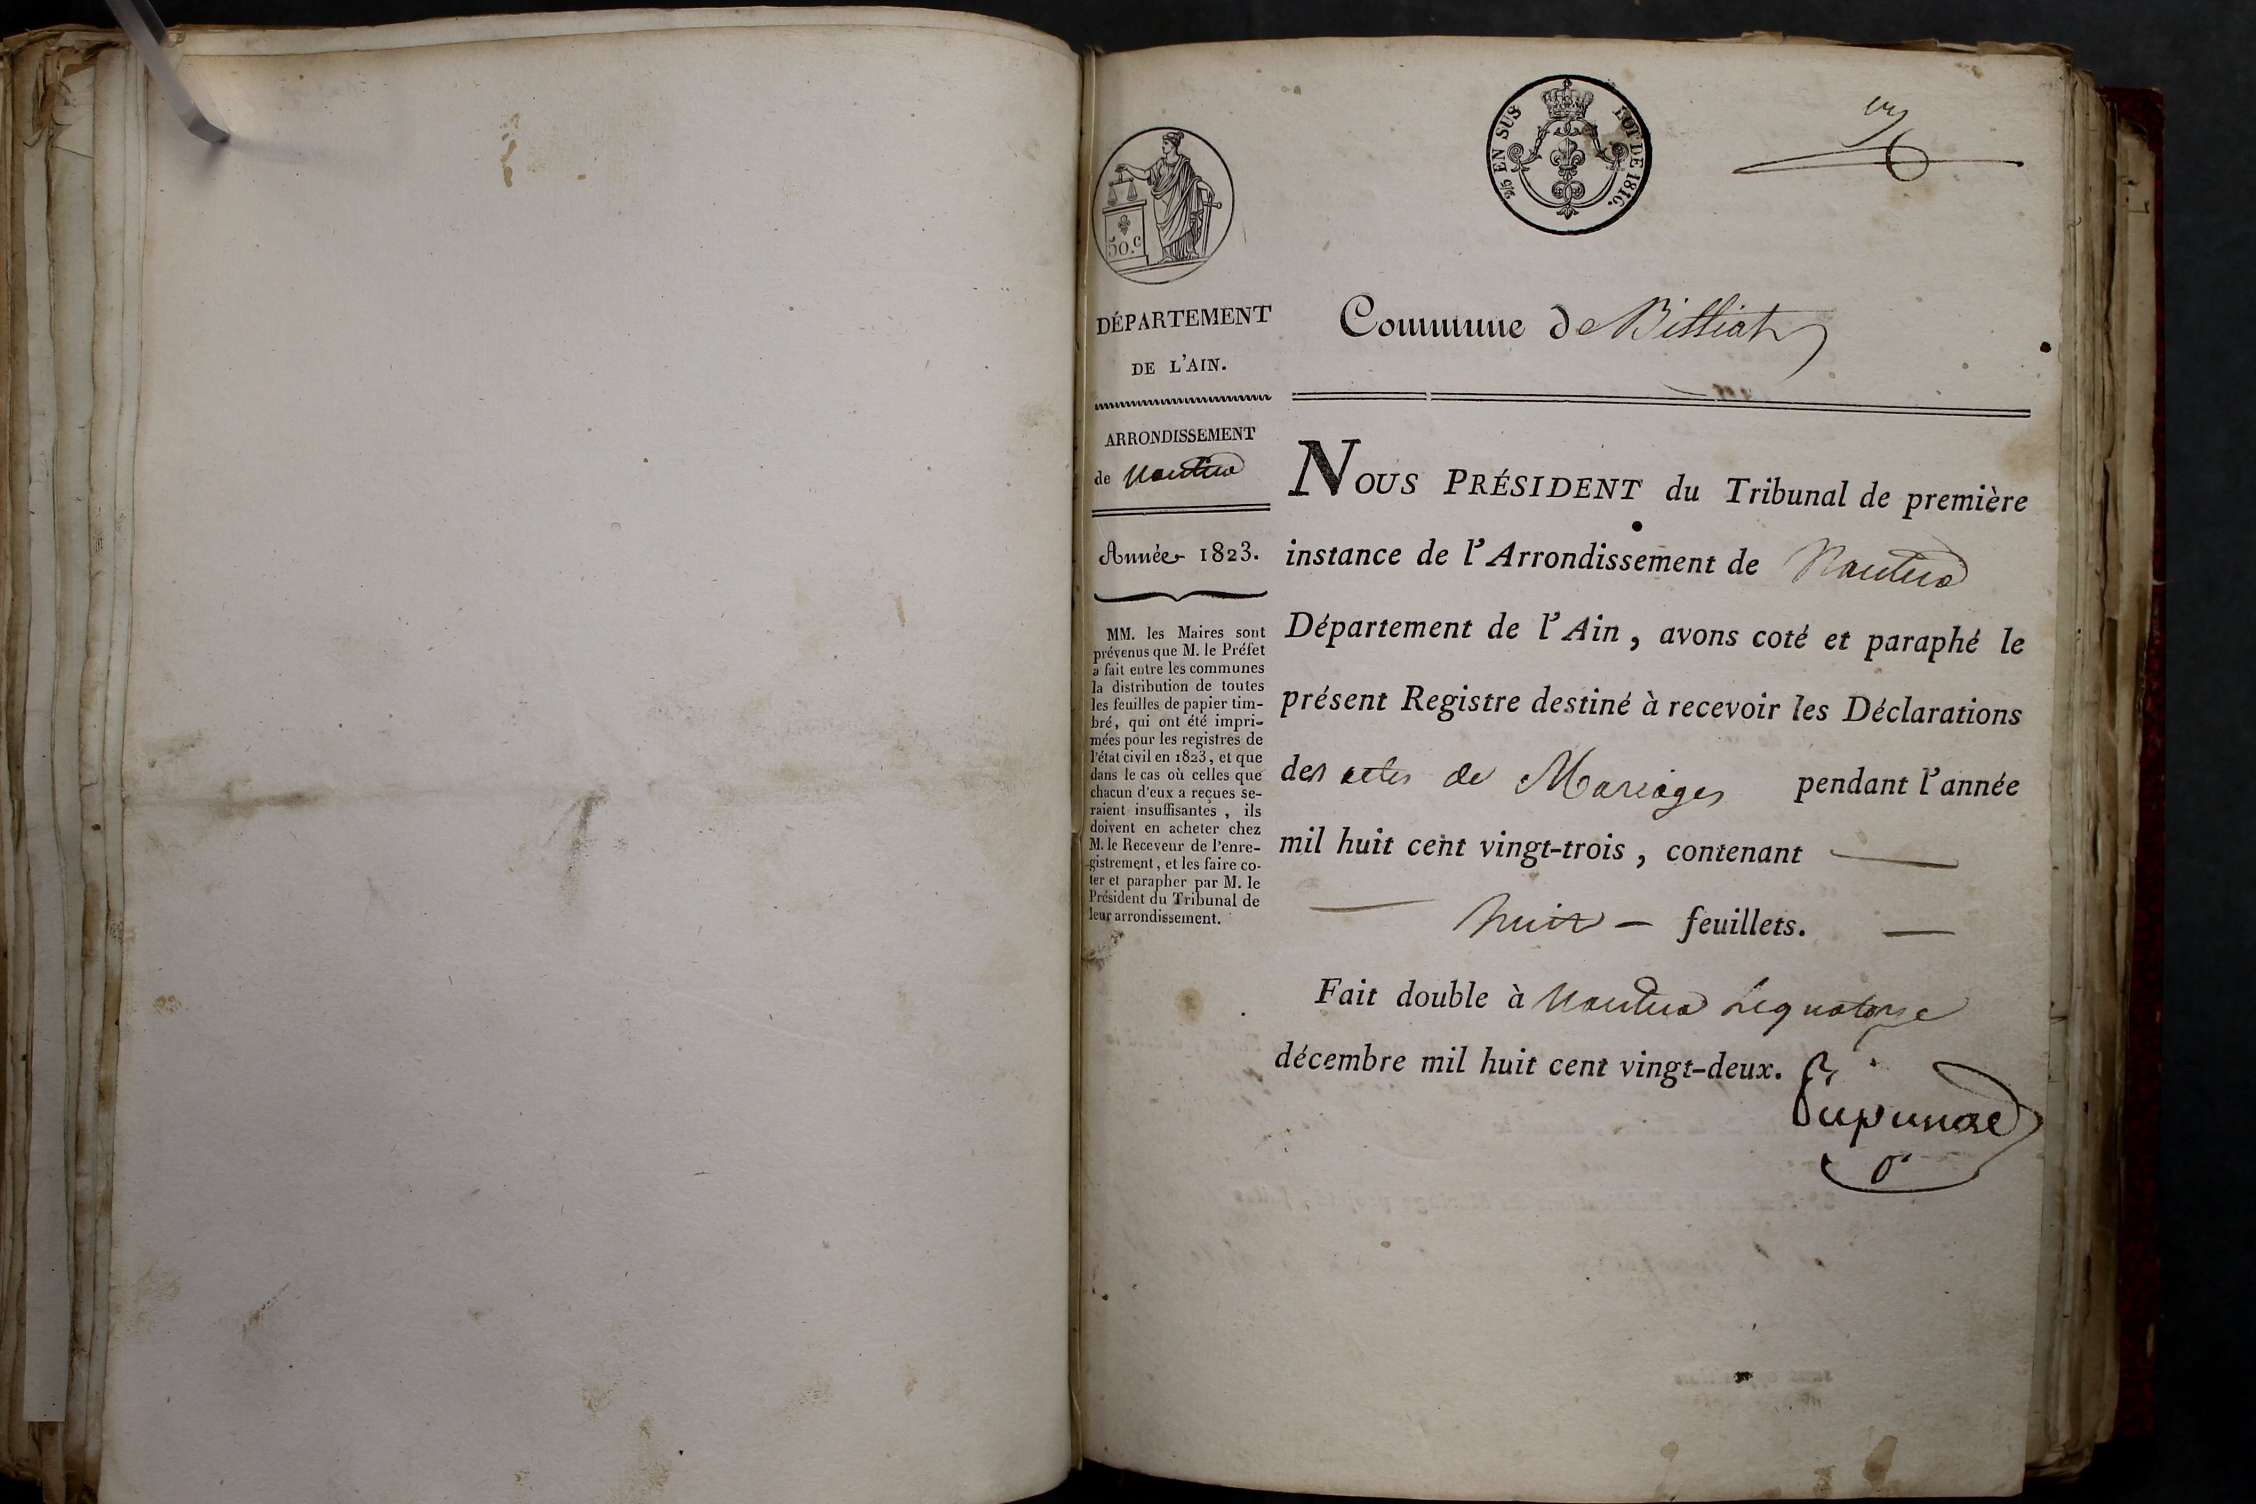 2/5 EN SUS LOI DE 1816.
50.c
DÉPARTEMENT
DE L'AIN.
ARRONDISSEMENT
de Nantua
Année 1823.
MM. les Maires sont
prévenus que M. le Préfet
a fait entre les communes
la distribution de toutes
les feuilles de papier tim-
bré, qui ont été impri-
mées pour les registres de
l'état civil en 1823, et que
dans le cas où celles que
chacun d'eux a reçues se-
raient insuffisantes, ils
doivent en acheter chez
M. le Receveur de l'enre-
gistrement, et les faire co-
ter et parapher par M. le
Président du Tribunal de
leur arrondissement.
Commune de Billiat
NOUS PRÉSIDENT du Tribunal de première
instance de l'Arrondissement de Nantua
Département de l'Ain, avons coté et paraphé le
présent Registre destiné à recevoir les Déclarations
des actes de Mariages pendant l'année
mil huit cent vingt-trois, contenant
huit — feuillets. —
Fait double à Nantua le quatorze
décembre mil huit cent vingt-deux.